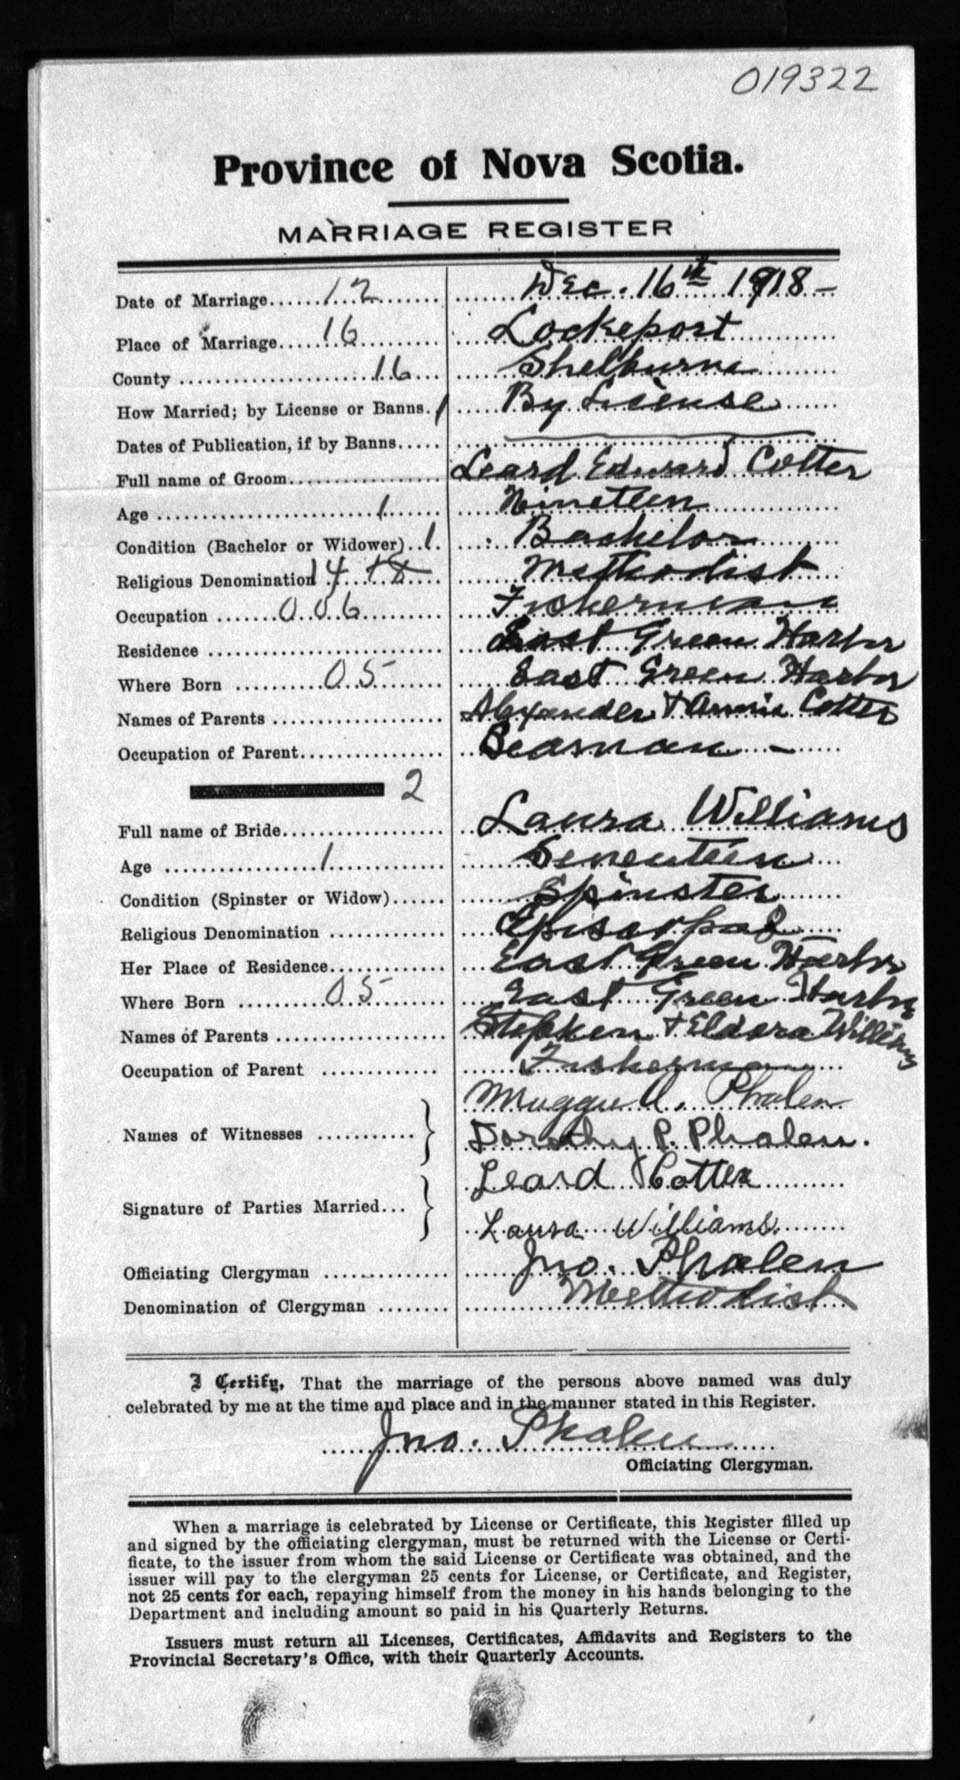 019322
Province of Nova Scotia.
MARRIAGE REGISTER
Date of Marriage......12....... Dec. 16th 1918 -
Place of Marriage....16........ Lockeport
County .................16... Shelburne
How Married; by License or Banns. 1 By License
Dates of Publication, if by Banns.....
Full name of Groom.................. Leard Edward Cotter
Age .......................1...... Nineteen
Condition (Bachelor or Widower)..1. Bachelor
Religious Denomination 14 Methodist
Occupation .......006......... Fisherman
Residence ........................ East Green Harbor
Where Born ..........05....... East Green Harbor
Names of Parents .................. Alexander & Annie Cotter
Occupation of Parent............... Seaman -
2
Full name of Bride................. Laura Williams
Age ...............1.......... Seventeen
Condition (Spinster or Widow)...... Spinster
Religious Denomination ............ Episcopal
Her Place of Residence............. East Green Harbor
Where Born .........05....... East Green Harbor
Names of Parents .................. Stephen & Eldora Williams
Occupation of Parent ............ Fisherman
Maggie A. Phalen
Names of Witnesses .......... } Dorothy P. Phalen.
Leard Cotter
Signature of Parties Married... }
Laura Williams.
Officiating Clergyman ............. Jno. Phalen
Denomination of Clergyman ........ Methodist
I Certify, That the marriage of the persons above named was duly
celebrated by me at the time and place and in the manner stated in this Register.
Jno. Phalen
Officiating Clergyman.
When a marriage is celebrated by License or Certificate, this Register filled up
and signed by the officiating clergyman, must be returned with the License or Certi-
ficate, to the issuer from whom the said License or Certificate was obtained, and the
issuer will pay to the clergyman 25 cents for License, or Certificate, and Register,
not 25 cents for each, repaying himself from the money in his hands belonging to the
Department and including amount so paid in his Quarterly Returns.
Issuers must return all Licenses, Certificates, Affidavits and Registers to the
Provincial Secretary's Office, with their Quarterly Accounts.